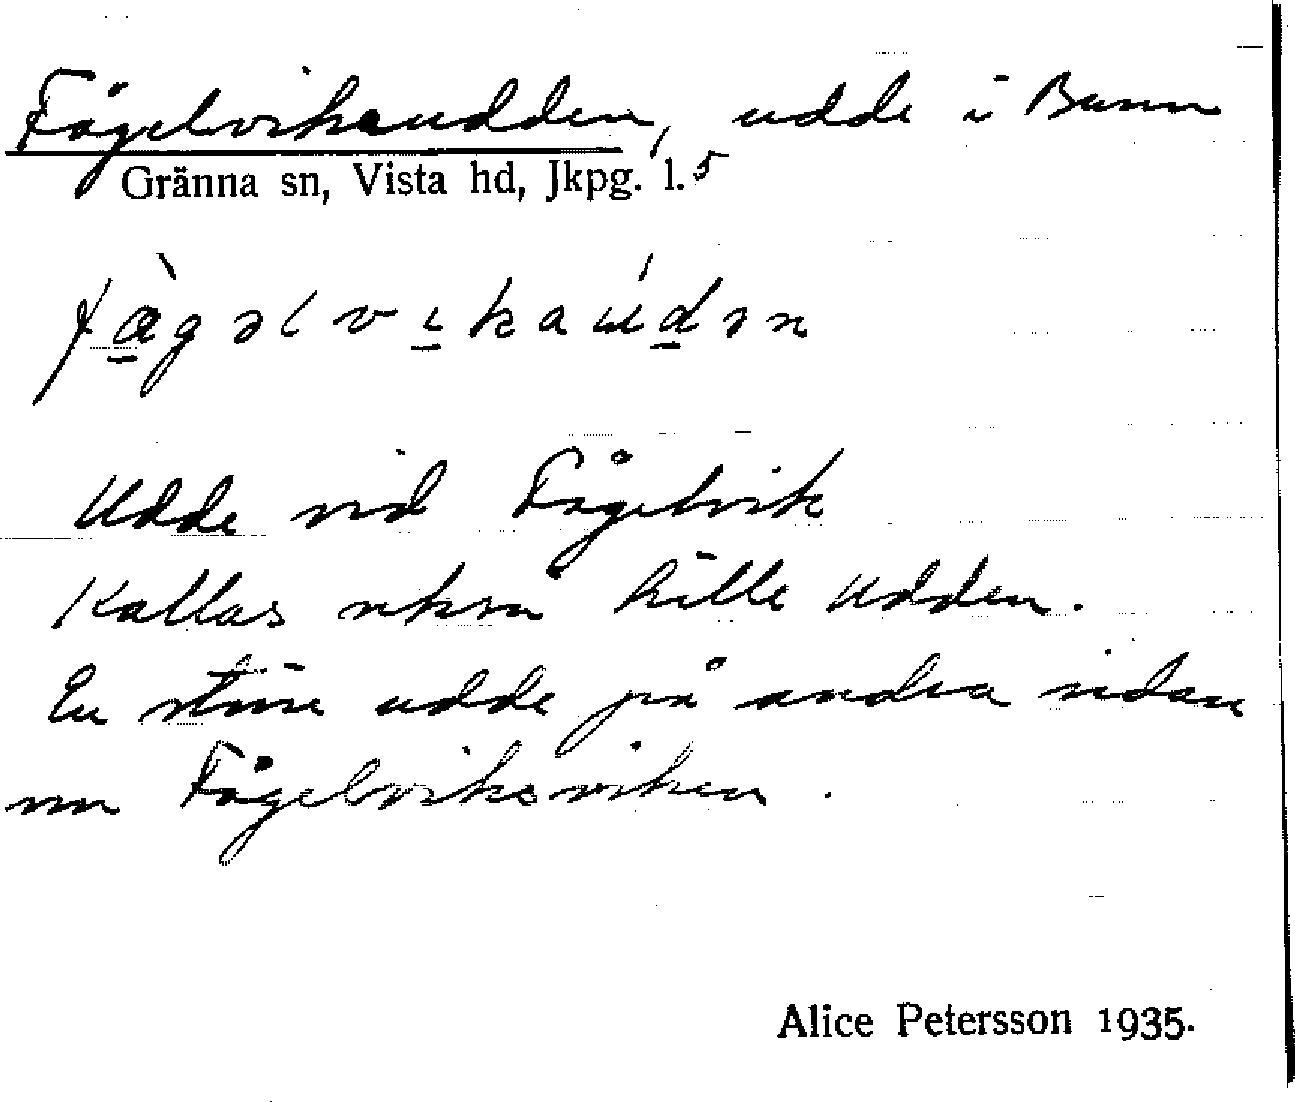 Fågelvikaudden, udde i Bunn
Gränna sn, Vista hd, Jkpg. l. 5
Udde vid Fågelvik
Kallas också Lille Udden.
En större udde på andra sidan
om Fågelviksviken.
Alice Petersson 1935.